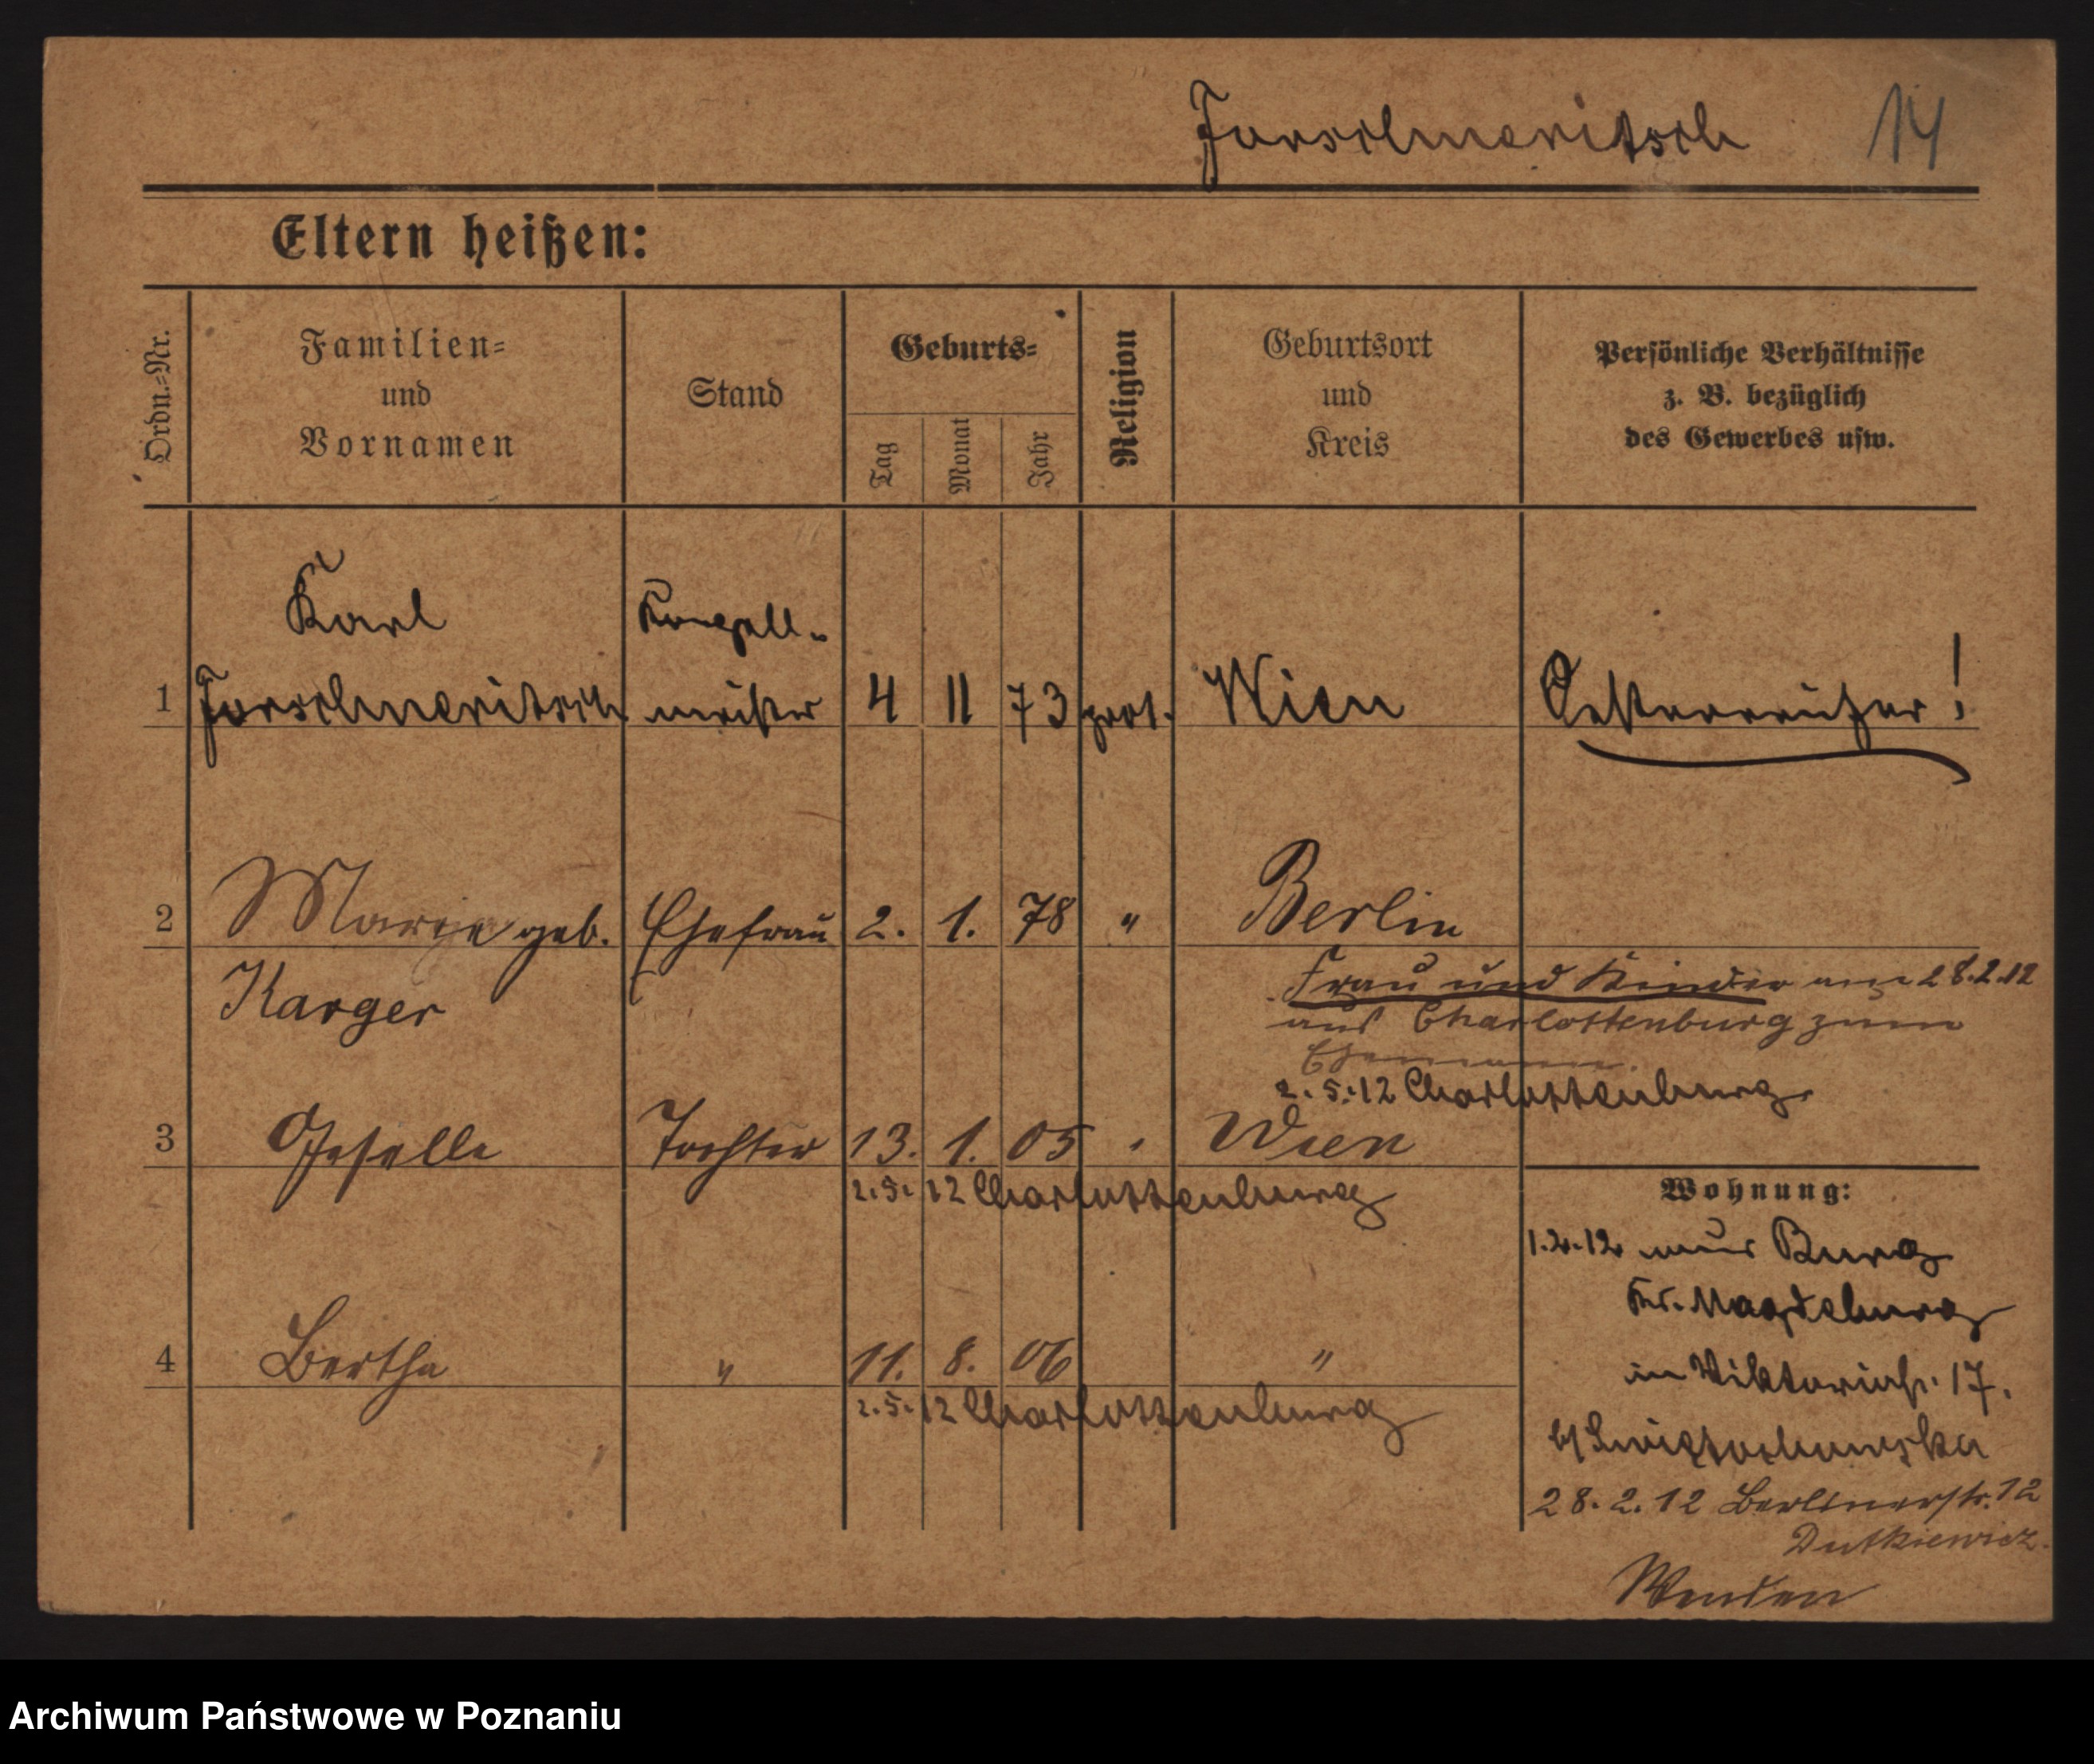 Forschneritsch 14
Eltern heißen:
Ordn.=Nr.
Familien=
und
Vornamen
Stand
Geburts=
Tag
Monat
Jahr
Religion
Geburtsort
und
Kreis
Persönliche Verhältnisse
z. B. bezüglich
des Gewerbes usw.
Karl
1 Forschneritsch meister 4 11 73 prot. Wien Oesterreicher!
2 Marie geb. Ehefrau 2. 1. 78 " Berlin
Karger
Frau und Kinder am 28.2.12
aus Charlottenburg zum
Ehemann.
2.5.12 Charlottenburg
3 Tochter 13. 1. 05 " Wien
2.5.12 Charlottenburg
4 Bertha " 11. 8. 06 "
2.5.12 Charlottenburg
Wohnung:
1.2.12 aus Burg
Kr. Magdeburg
in Viktoriastr. 17.
b/
28.2.12 Berlinerstr. 12
Dutkiewicz.
Wenden
Archiwum Państwowe w Poznaniu